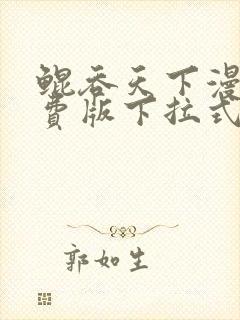 鲲吞天下漫
费版下拉式
郭如生